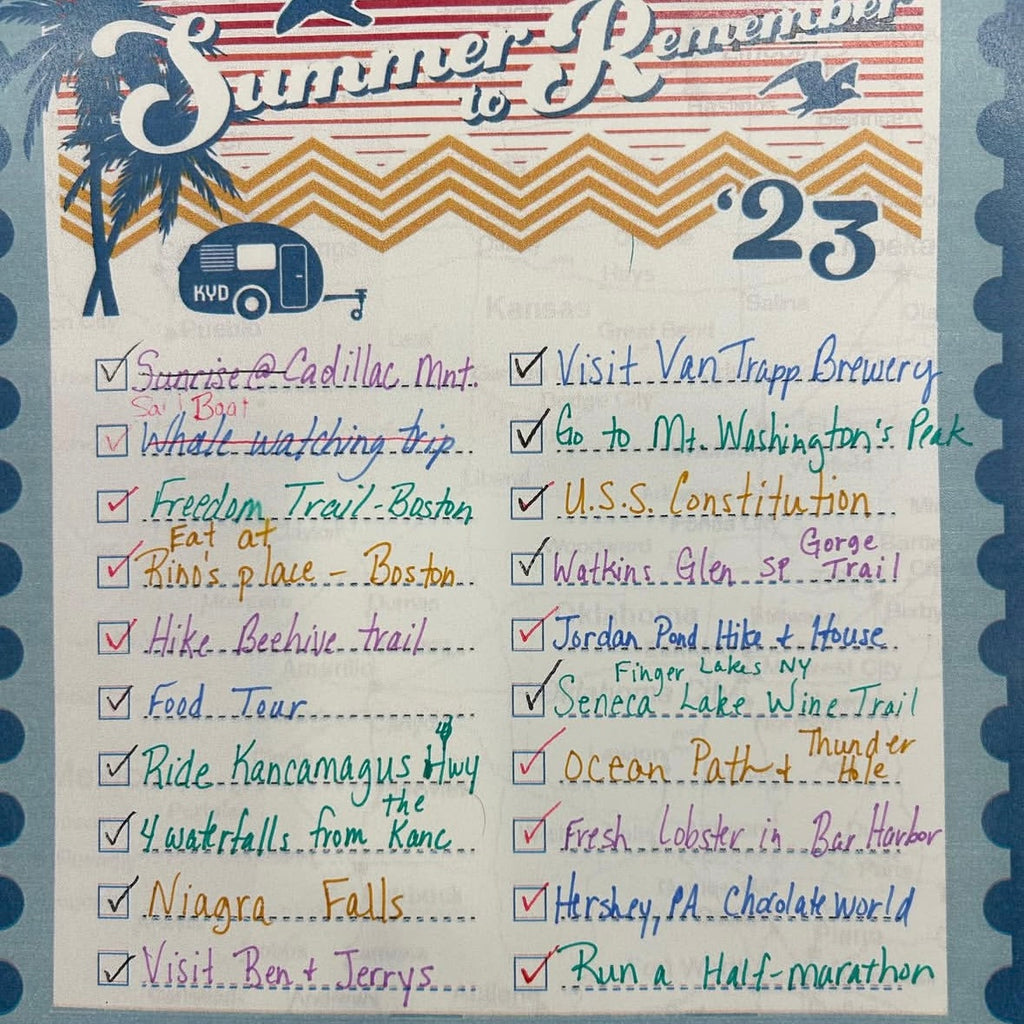 Summer
to Remember
'23
KYD
Sunrise @ Cadillac Mnt.
Sail Boat
Whale watching trip
Freedom Trail-Boston
Eat at
Rino's place - Boston
Hike Beehive trail
Food Tour
Ride Kancamagus Hwy
the
4 waterfalls from Kanc
Niagra Falls
Visit Ben + Jerrys
Visit Van Trapp Brewery
Go to Mt. Washington's Peak
U.S.S. Constitution
Gorge
Watkins Glen SP Trail
Jordan Pond Hike + House
Finger Lakes NY
Seneca Lake Wine Trail
Thunder
Ocean Path + Hole
Fresh Lobster in Bar Harbor
Hershey, PA Chocolate world
Run a Half-marathon
Kansas
Hays
Salina
Great Bend
Pueblo
Dodge City
Liberal
Oklahoma
Amarillo